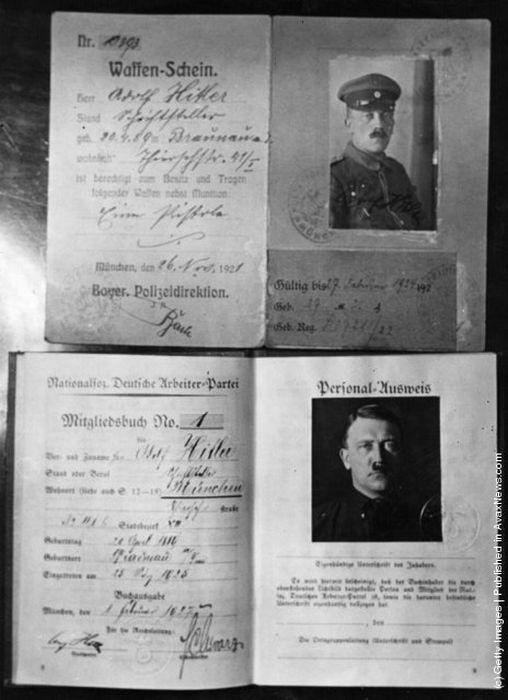 Nr.
Waffen-Schein.
Herr Adolf Hitler
Stand Schriftsteller
geb. 20.4.89 in Braunau a. I.
wohnhaft Thierschstr. 41/I
ist berechtigt zum Besitz und Tragen
folgender Waffen nebst Munition:
Eine Pistole
München, den 26. Nov. 1921
Bayer. Polizeidirektion.
Gültig bis 27. Februar 192
Geb.
Geb. Reg.
Nationalsoz. Deutsche Arbeiter-Partei
Mitgliedsbuch No. 1
für
Vor- und Zuname Adolf Hitler
Stand oder Beruf Schriftsteller
Wohnort (siehe auch S. 12-19) München
straße
Stadtbezirk
Geburtstag 20 April
Geburtsort Braunau
Eingetreten am 1925
Buchausgabe
München, den 1. Februar 1927
Für die Reichsleitung:
Schwarz
8
Personal-Ausweis
Eigenhändige Unterschrift des Inhabers.
Es wird hiermit bescheinigt, daß der Buchinhaber die durch
obenstehendes Lichtbild dargestellte Person und Mitglied der Nat.
soz. Deutschen Arbeiter-Partei ist, sowie die darunter befindliche
Unterschrift eigenhändig vollzogen hat.
, den
Die Ortsgruppenleitung (Unterschrift und Stempel)
9
(c) Getty Images | Published in AvaxNews.com